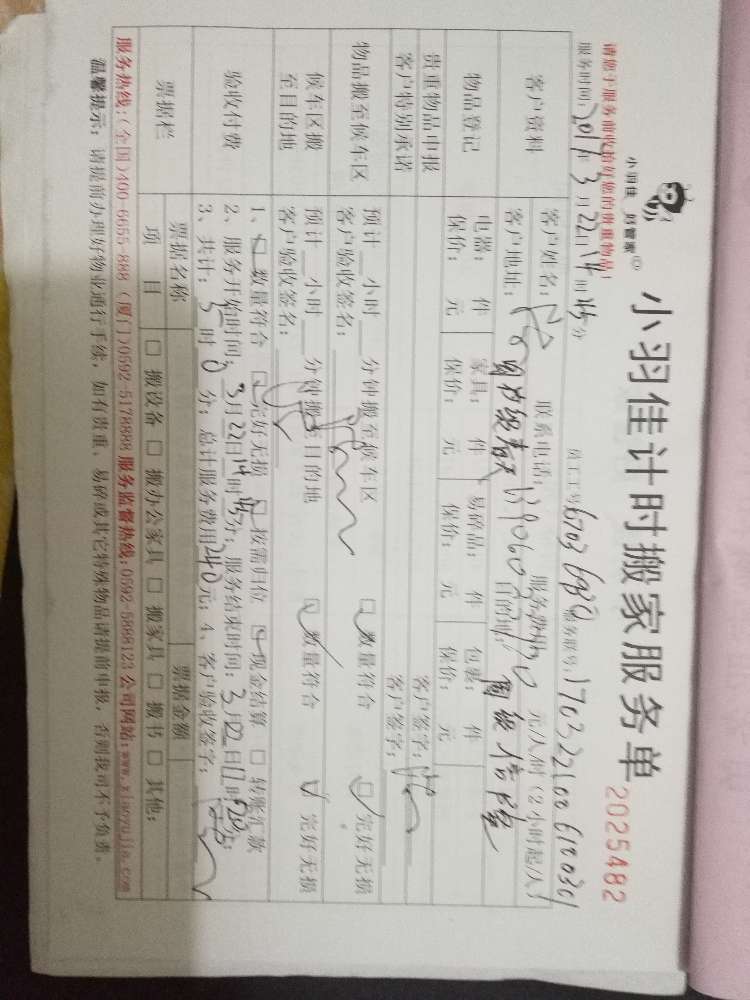 小羽佳计时搬家服务单
2025482
小羽佳 好管家
请您于服务前收拾好您的贵重物品！
服务时间：2017年3月22日14时45分 员工工号 服务联号：
客户资料
客户姓名： 联系电话： 服务费用： 元/人/时（2小时起/人）
客户地址： 目的地：
物品登记
电器： 件 家具： 件 易碎品： 件 包装： 件
保价： 元 保价： 元 保价： 元 保价： 元
贵重物品申报 客户签字：
客户特别承诺 客户签字：
物品搬至候车区
预计 小时 分钟搬至候车区 □数量符合 □完好无损
客户验收签名：
候车区搬至目的地
预计 小时 分钟搬至目的地 □数量符合 □完好无损
客户验收签名：
验收付费
1、□数量符合 □完好无损 □按需归位 □现金结算 □转账汇款
2、服务开始时间：3月22日14时45分；服务结束时间：3月22日17时 分；
3、共计：3时0分；总计服务费用240元；4、客户验收签字：
票据栏
票据名称 票据金额
项 目 □搬设备 □搬办公家具 □搬家具 □搬书 □其他：
服务热线：（全国）400-6655-888（厦门）0592-5178888 服务监督热线：0592-5888123 公司网站：www.xiaoyujia.com
温馨提示：请提前办理好物业通行手续，如有贵重、易碎或其它特殊物品请提前申报，否则我司不予负责。